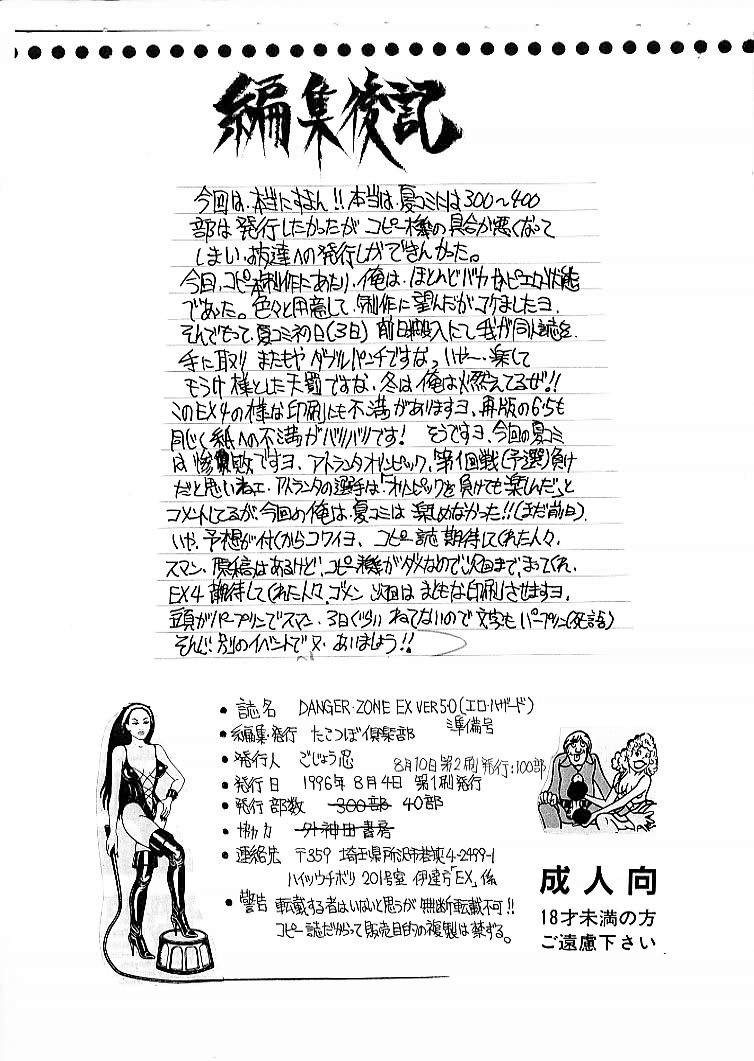 編集後記
今回は、本当にすまん!!本当は、夏コミには300〜400
部は発行したかったが コピー機の具合が悪くなって
しまい、お友達への発行しかできんかった。
今回、コピー本制作にあたり、俺は、ほとんどバカかピエロ状態
であった。色々と用意して、制作に望んだがコケましたヨ、
そんでもって、夏コミ初日(3日)前日搬入にて 我が同人誌を、
手に取り またもや ダブルパンチですな、いやー、楽して
もうけ様とした天罰ですな、冬は俺は燃えてるぜ!!
このEX4の様な印刷にも不満がありますヨ、再版の6.5も
同じく紙への不満がバリバリです! そうですヨ、今回の夏コミ
は惨敗ですヨ、アトランタオリンピック、第1回戦(予選)負け
だと思いねェ、アトランタの選手は「オリンピックを負けても楽しんだ」と
コメントしてるが、今回の俺は、夏コミは 楽しめなかった!!(まだ前日)、
いや、予想が付くからコワイヨ、コピー誌 期待してくれた人々、
スマン、原稿はあるけど、コピー機がダメなので次回まで、まってくれ、
EX4 期待してくれた人々、ゴメン 次回は まともな印刷させますヨ、
頭がパープリンでスマン、3日ぐらい ねてないので 文字も パープリン(死語)
そんじゃ 別のイベントで 又、あいましょう!!
● 誌名 DANGER・ZONE EX VER5・0(エロ・ハザード)
準備号
● 編集・発行 たこつぼ倶楽部
● 発行人 ごじょう忍
8月10日第2刷発行:100部
● 発行日 1996年8月4日 第1刷発行
● 発行部数 300部 40部
外神田書房
● 連絡先 〒359 埼玉県所沢市若狭4-2499-1
ハイツウチボリ 201号室 伊達方「EX」係
● 警告 転載する者はいないと思うが 無断転載不可!!
コピー誌だからって販売目的の複製は禁ずる。
成人向
18才未満の方
ご遠慮下さい